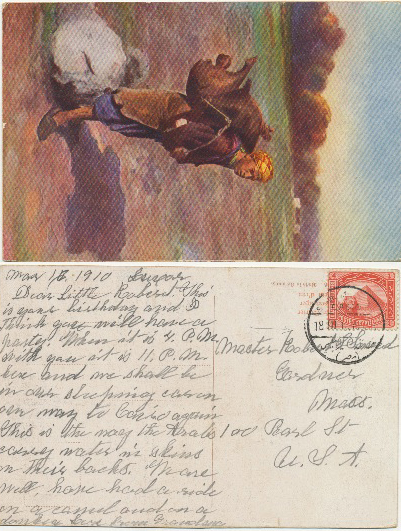 Mar 18, 1910 Luxor
Dear Little Robert. This
is your birthday and I
think you will have a
party. When it is 4 P.M.
with you it is 11 P.M.
here and we shall be
in our sleeping car on
our way to Cairo again
This is the way the Arabs
carry water in skins
on their backs. We are
well, have had a ride
on a camel and on a
donkey Love from Grandma
Master Robert
Gardner
Mass.
100 Pearl St
U.S.A.